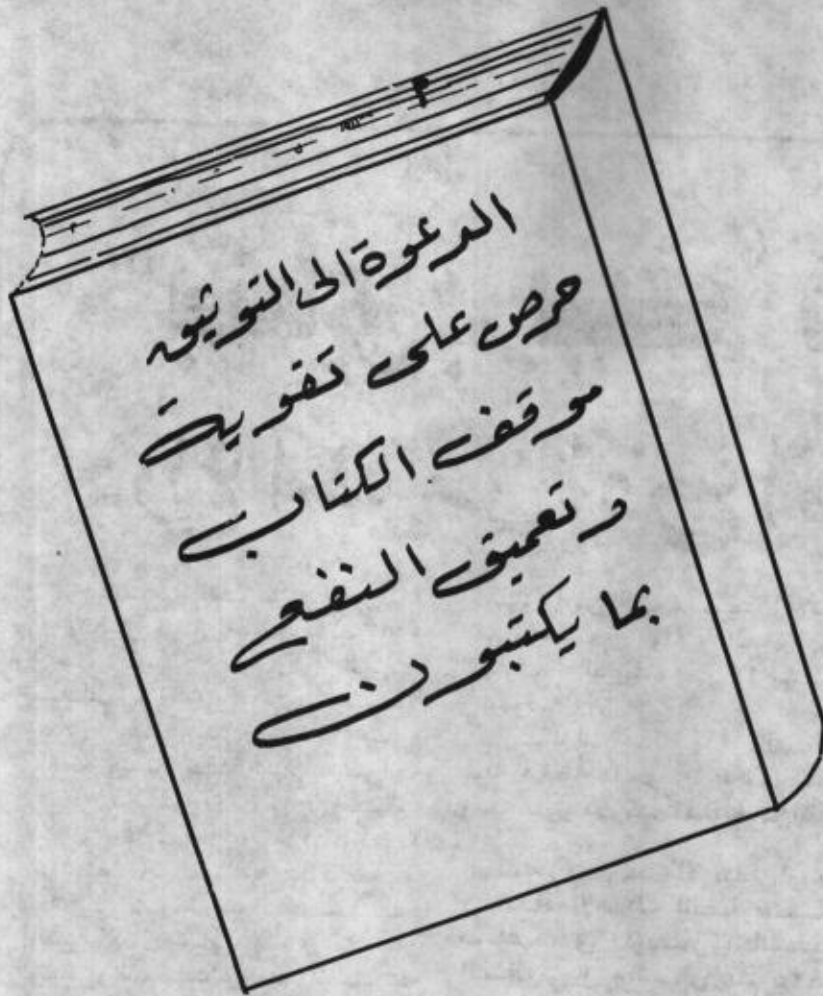 الدعوة الى التوثيق
حرص على تقوية
موقف الكتاب
وتعميق النفع
بما يكتبون